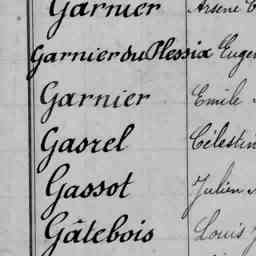 Garnier Arsène
Garnier du Plessix Eugè
Garnier Emile
Gasrel Célestin
Gassot Julien
Gâtebois Louis